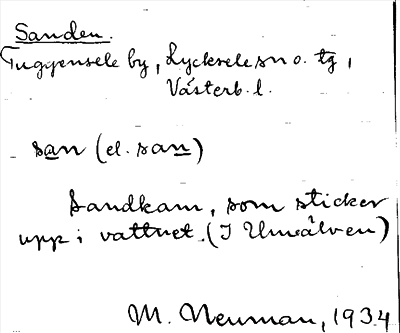 Sanden.
Tuggensele by, Lycksele sn o. tg,
Västerb. l.
san (el. san)
Sandkam, som sticker
upp i vattnet. (I Umeälven)
M. Neuman, 1934